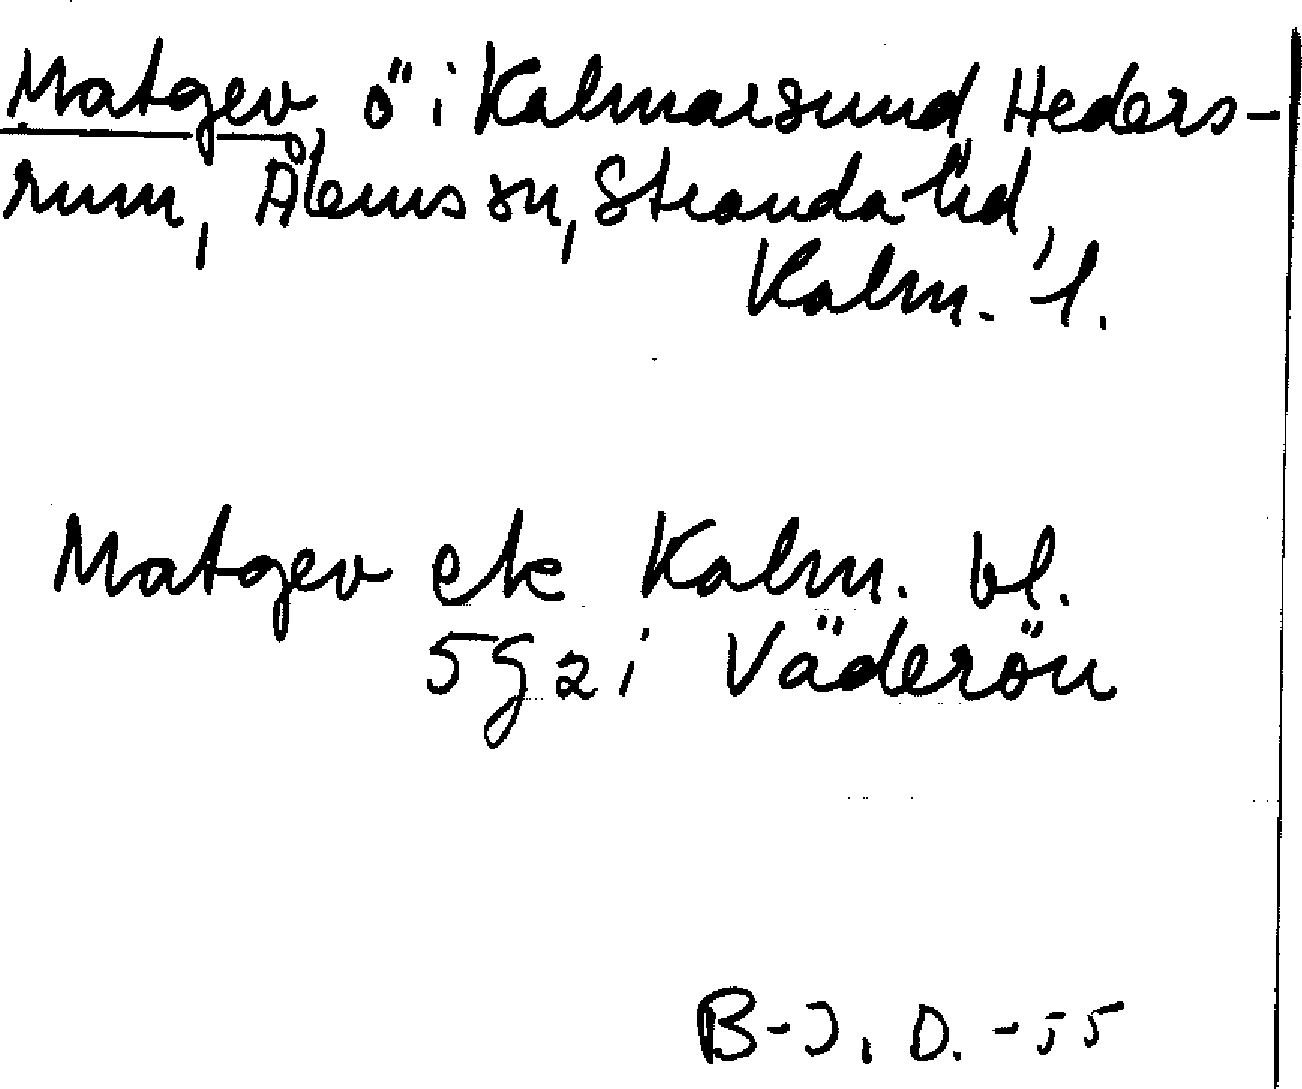 Matgev, ö i Kalmarsund, Heders-
rum, Ålems sn, Stranda hd,
Kalm. l.
Matgev ek Kalm. bl.
5 G 2 i Väderön
B-J. D. -55